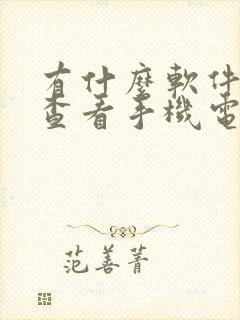 有什麼軟件
查看手機電
范善菁